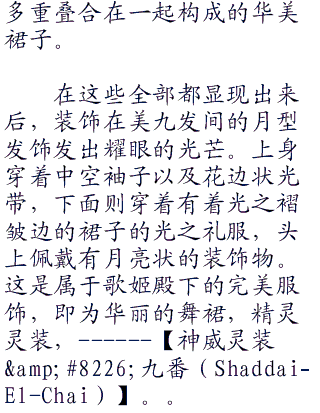 多重叠合在一起构成的华美
裙子。
在这些全部都显现出来
后，装饰在美九发间的月型
发饰发出耀眼的光芒。上身
穿着中空袖子以及花边状光
带，下面则穿着有着光之褶
皱边的裙子的光之礼服，头
上佩戴有月亮状的装饰物。
这是属于歌姬殿下的完美服
饰，即为华丽的舞裙，精灵
灵装，------【神威灵装
&amp;#8226;九番（Shaddai-
El-Chai）】。。